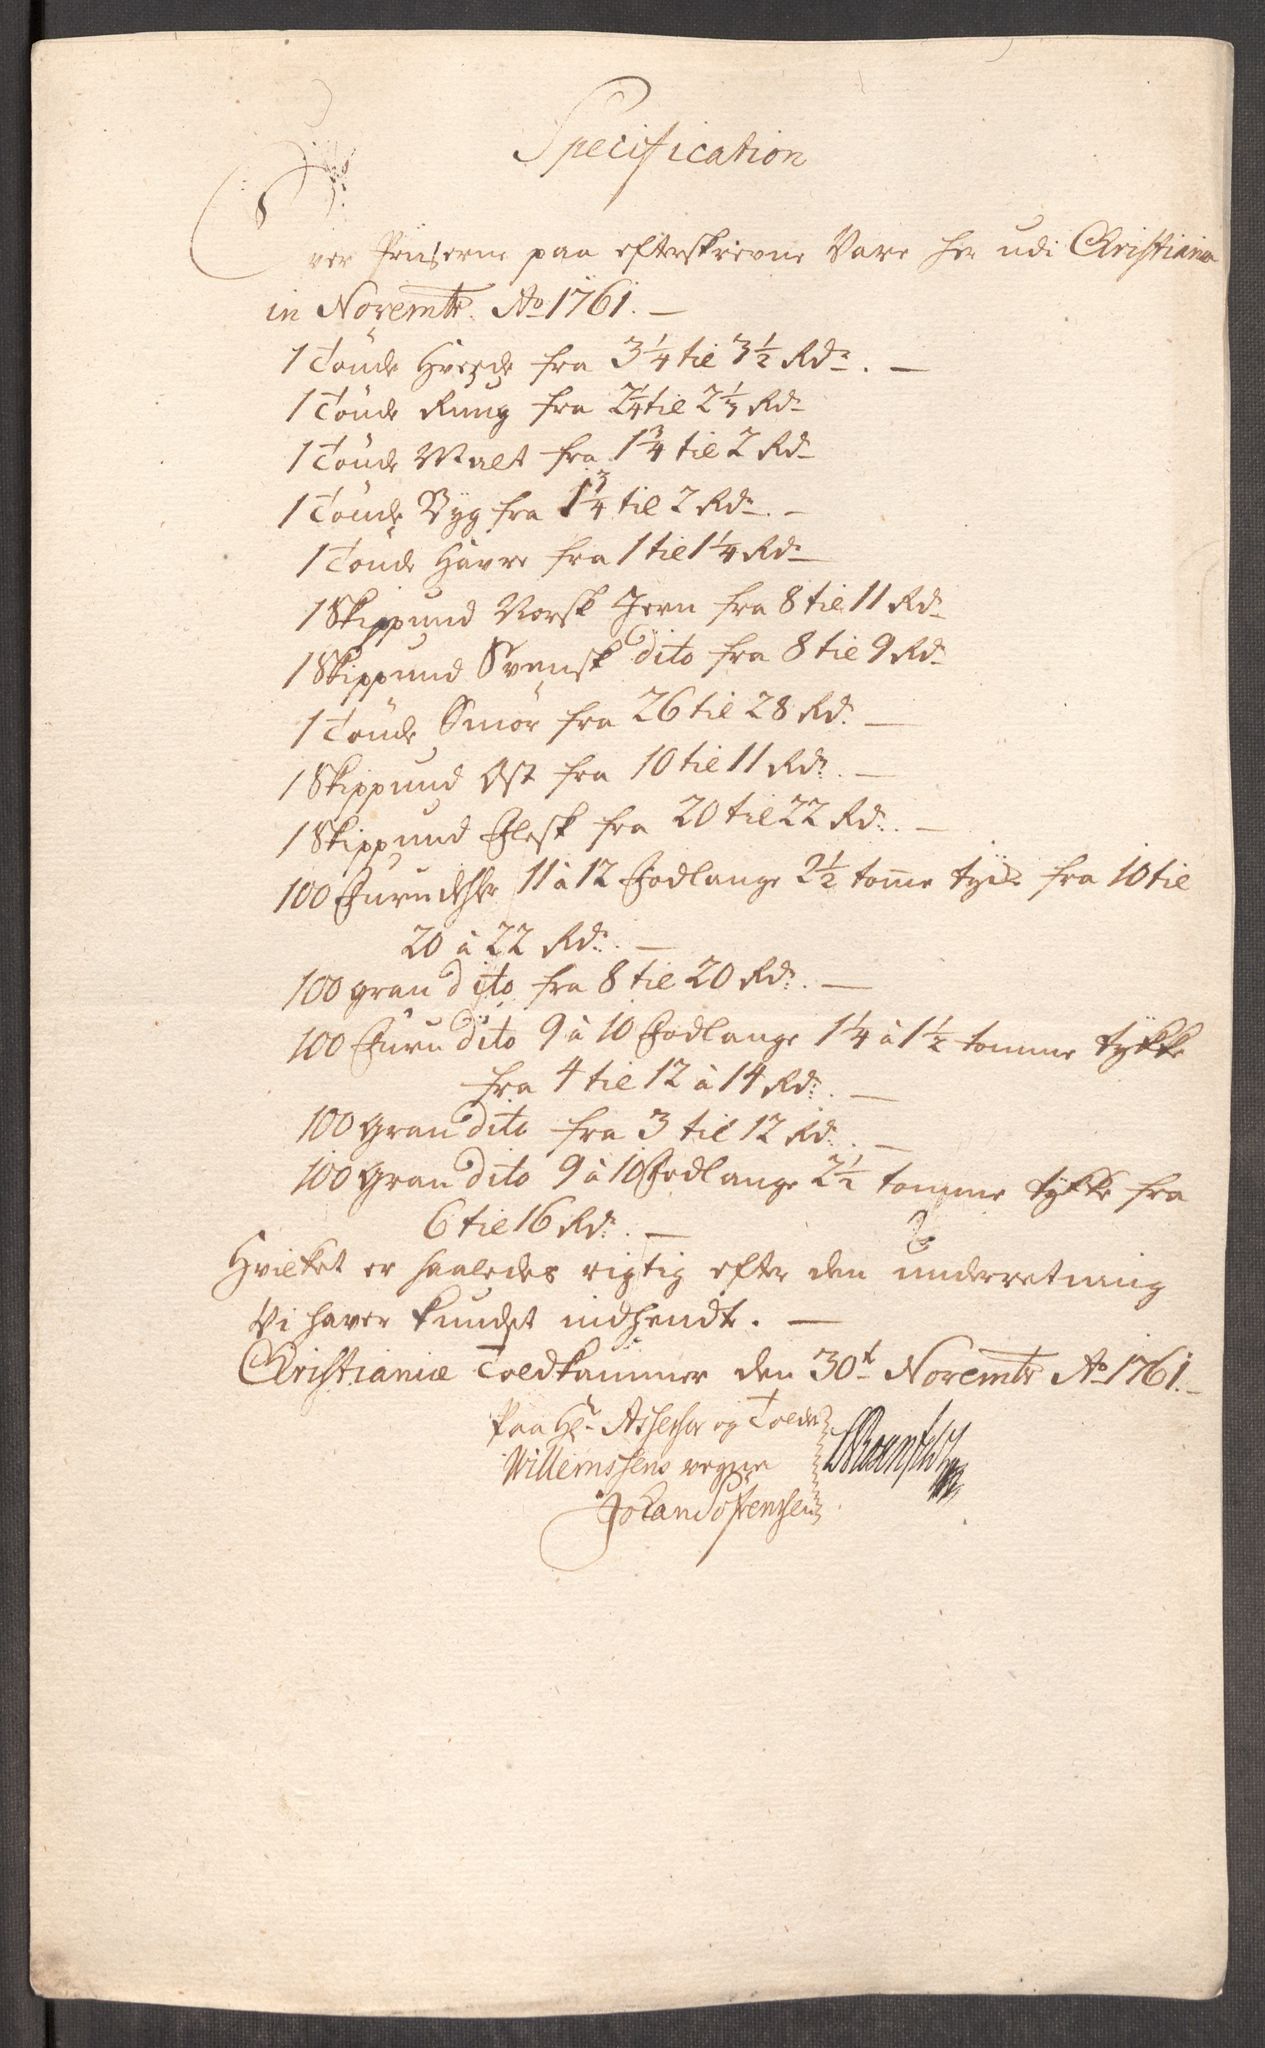 Specification
Over Priiserne paa efterskrevne Vare her udi Christiania
in Novembr. Ao 1761. —
1 Tönde Hvede fra 3 1/4 til 3 1/2 Rdr. —
1 Tönde Rug fra 2 1/4 til 2 1/3 Rdr
1 Tönde Malt fra 1 3/4 til 2 Rdr
1 Tönde Byg fra 1 3/4 til 2 Rdr. —
1 Tönde Havre fra 1 til 1 1/4 Rdr
1 Skippund Norsk Jern fra 8 til 11 Rdr
1 Skippund Svensk dito fra 8 til 9 Rdr
1 Tönde Smör fra 26 til 28 Rdr. —
1 Skippund Ost fra 10 til 11 Rdr. —
1 Skippund Flesk fra 20 til 22 Rdr. —
100 Furu dehler 11 à 12 Fodlange 2 1/2 tomme tyk fra 10 til
20 à 22 Rdr. —
100 gran dito fra 8 til 20 Rdr. —
100 Furu dito 9 à 10 Fodlange 1 1/4 à 1 1/2 tomme tykke
fra 4 til 12 à 14 Rdr. —
100 Gran dito fra 3 til 12 Rdr. —
100 Gran dito 9 à 10 Fodlange 2 1/2 tomme tykke fra
6 til 16 Rdr. —
Hvilket er saaledes rigtig efter den underretning
Vi haver kundet indhendte. —
Christianiæ Toldkammer den 30t Novembr Ao 1761. —
Paa Hr. Assessor og Tolder
Willemssens vegne
Johan Sörenssen